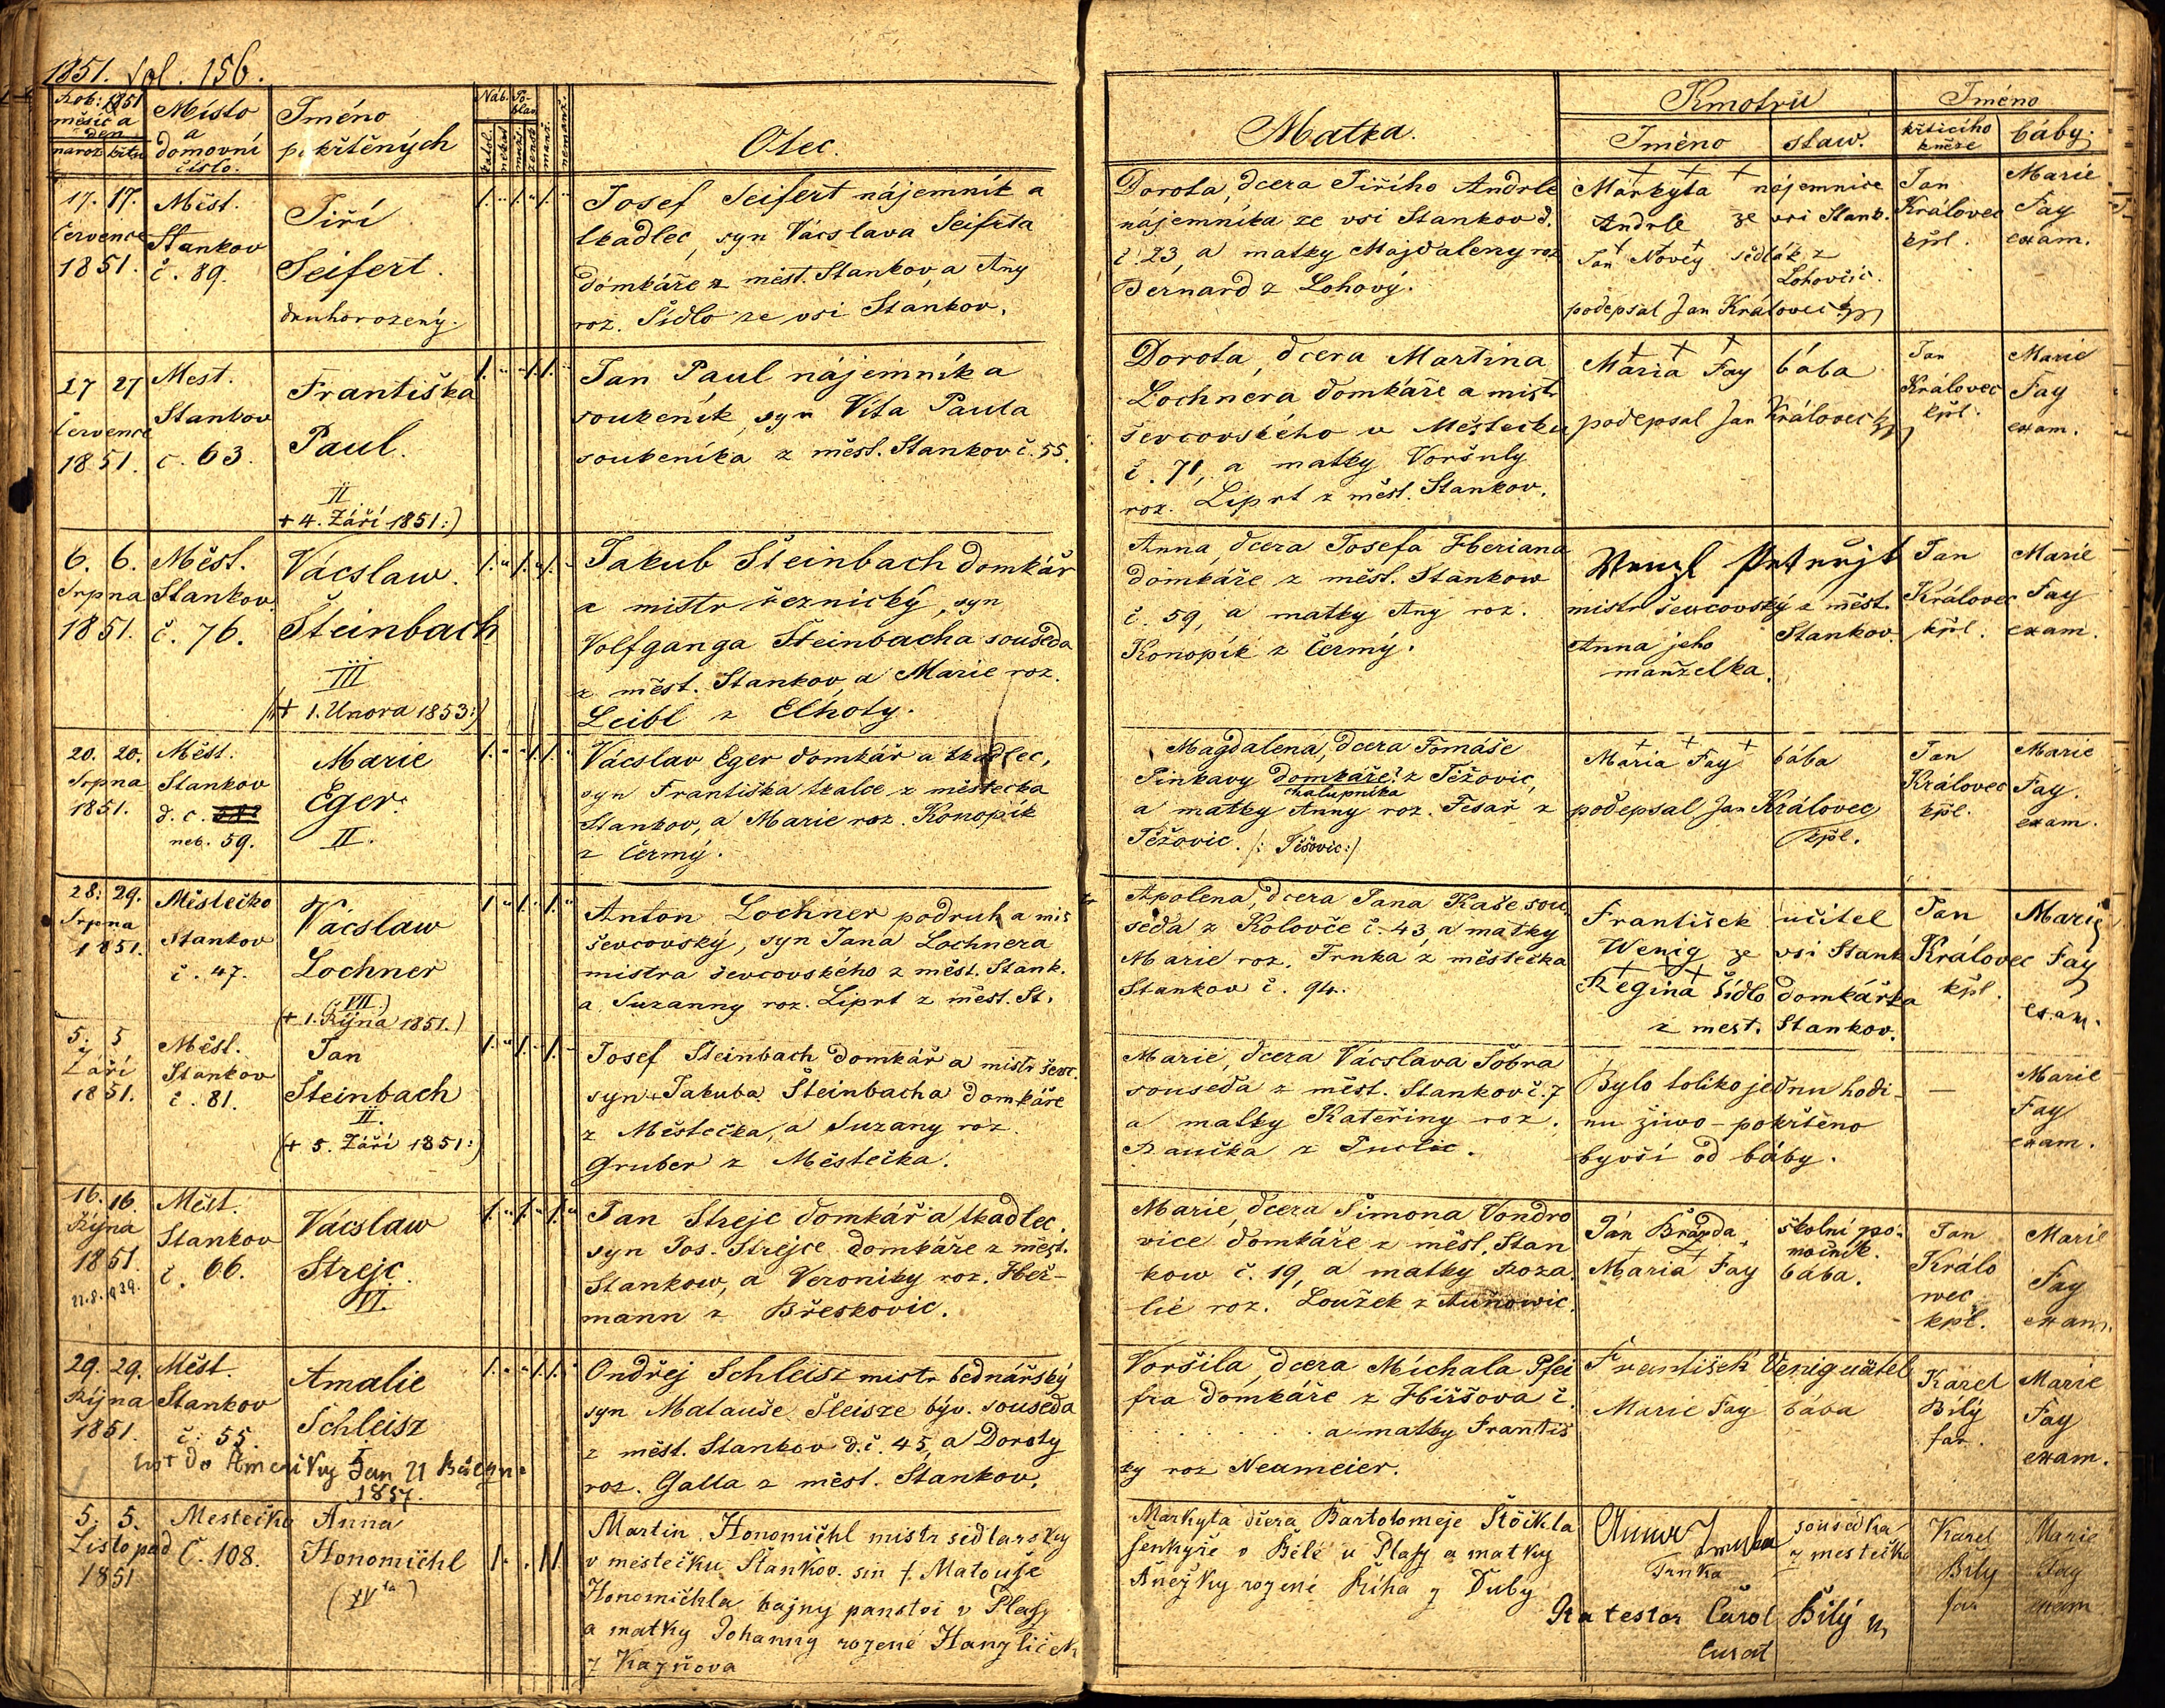 1851. fol. 156.
Rok: 1851 měsíc a den
naroz. křtu
Místo a domovní číslo.
Jméno pokřtěných
Náb. Po-hlaví
katol. nekat. muž. žensk. manž. nemanž.
Otec.
Matka.
Kmotrů
Jméno staw.
Jméno
křtícího kněze
báby.
17. 17. července 1851.
Měst. Stankov č. 89.
Jiří
Seifert.
druhorozený.
Josef Seifert nájemník a
tkadlec, syn Vácslava Seifrta
domkáře z měst. Stankov, a Any
roz. Šidlo ze vsi Stankov.
Dorota, dcera Jiřího Andrle
nájemníka ze vsi Stankov d.
č. 23, a matky Majdaleny roz.
Bernard z Lohový.
+ + +
Markyta nájemnice
Andrle ze vsi Stank.
+ + +
Jan Nový sedlák z
Lohovčic.
podepsal Jan Královec
Jan
Královec
kpl.
Marie
Fay
exam.
27 27 července 1851.
Mest. Stankov č. 63.
Františka
Paul.
II
+ 4. Září 1851:)
Jan Paul nájemník a
soukeník, syn Víta Paula
soukeníka z měst. Stankov č. 55.
Dorota, dcera Martina
Lochnera domkáře a mistr
ševcovského v Městečku
č. 71, a matky Voršuly
roz. Liprt z měst. Stankov.
+ + +
Maria Fay bába
podepsal Jan Královec
Jan
Královec
kpl.
Marie
Fay
exam.
6. 6. Srpna 1851.
Měst. Stankov č. 76.
Vácslaw.
Šteinbach
III
(+ 1. Unora 1853:)
Jakub Šteinbach domkář
a mistr řeznický, syn
Volfganga Šteinbacha souseda
z měst. Stankov, a Marie roz.
Leibl z Elhoty.
Anna, dcera Josefa Heriana
domkáře z měst. Stankow
č. 59, a matky Any roz.
Konopík z Čermý.
Wenzl
mistr ševcovský z měst.
Stankov.
Anna jeho
manželka.
Jan
Královec
kpl.
Marie
Fay
exam.
20. 20. Srpna 1851.
Měst. Stankov d. c.
neb. 59.
Marie
Eger.
II.
Vácslav Eger domkář a tkadlec,
syn Františka tkalce z městečka
Stankov, a Marie roz. Konopík
z Čermý.
Magdalena, dcera Tomáše
Pinkavy domkáře z Těžovic,
chalupníka
a matky Anny roz. Tesař z
Těžovic. (: Těšovic:)
+ + +
Maria Fay bába
podepsal Jan Královec
kpl.
Jan
Královec
kpl.
Marie
Fay.
exam.
28. 29. Srpna 1851.
Městečko Stankov č. 47.
Vácslaw
Lochner
(VII.)
(+ 1. Října 1851.)
Anton Lochner podruh a mis
ševcovský, syn Jana Lochnera
mistra ševcovského z měst. Stank.
a Suzanny roz. Liprt z měst. St.
Apolena, dcera Jana Kaše sou.
seda z Kolovče č. 43, a matky
Marie roz. Trnka z městečka
Stankov č. 94.
František učitel
Wenig ze vsi Stank
+ + +
Regina Šidlo domkářka
z mest. Stankov.
Jan
Královec
kpl.
Marie
Fay
exam.
5. 5 Září 1851.
Měst. Stankov č. 81.
Jan
Šteinbach
II.
(+ 5. Září 1851:)
Josef Šteinbach domkář a mistr ševc.
syn Jakuba Šteinbacha domkáře
z Městečka, a Suzany roz.
Gruber z Městečka.
Marie, dcera Vácslava Šobra
souseda z měst. Stankov č. 7
a matky Kateřiny roz.
Naučka z Puclic.
Bylo toliko jednu hodi-
nu žiwo - pokřtěno
byvší od báby.
—
Marie
Fay
exam.
16. 16. Října 1851.
22.8.939.
Měst. Stankov č. 66.
Vácslaw
Strejc.
VI.
Jan Strejc domkář a tkadlec.
syn Jos. Strejce domkáře z měst.
Stankow, a Veroniky roz. Heř-
mann z Břeskovic.
Marie, dcera Šimona Vondro
vice domkáře z měst. Stan
kow č. 19, a matky Roza.
lie roz. Loužek z Auňowic.
Ján Branda, školní po-
močník.
+ + +
Maria Fay bába.
Jan
Králo
wec
kpl.
Marie
Fay
exam.
29. 29. Října 1851.
Měst. Stankov č. 55.
Amalie
Schleisz
I
Ondřej Schleisz mistr bednářský
syn Matauše Šleisze býv. souseda
z měst. Stankov d. č. 45, a Doroty
roz. Galla z měst. Stankov.
Voršila, dcera Michala Pfei
fra domkáře z Hiršova č.
. . . . a matky Františ
ky roz Neumeier.
František Venig učitel
Marie Fay bába
Karel
Bílý
far.
Marie
Fay
exam.
do Ameriky Dan 21
1857.
5. 5. Listopad 1851
Mestečko č. 108.
Anna
Honomichl
(IV ta)
Martin Honomichl mistr sedlarsky
v mestečku Štankov. sin f. Matouše
Honomichla hajny panstvi v Plasy
a matky Johanny rozene Hanzliček
z Kaznova
Markyta dcera Bartolomeje Stöckla
šenkyře v Bělé u Plasy a matky
Anežky rozeni Říha z Duby
Anna Trnka
Trnka
sousedka
z mestečka
Na testor Carol Bílý
Curat
Karel
Bílý
far
Marie
Fay
exam